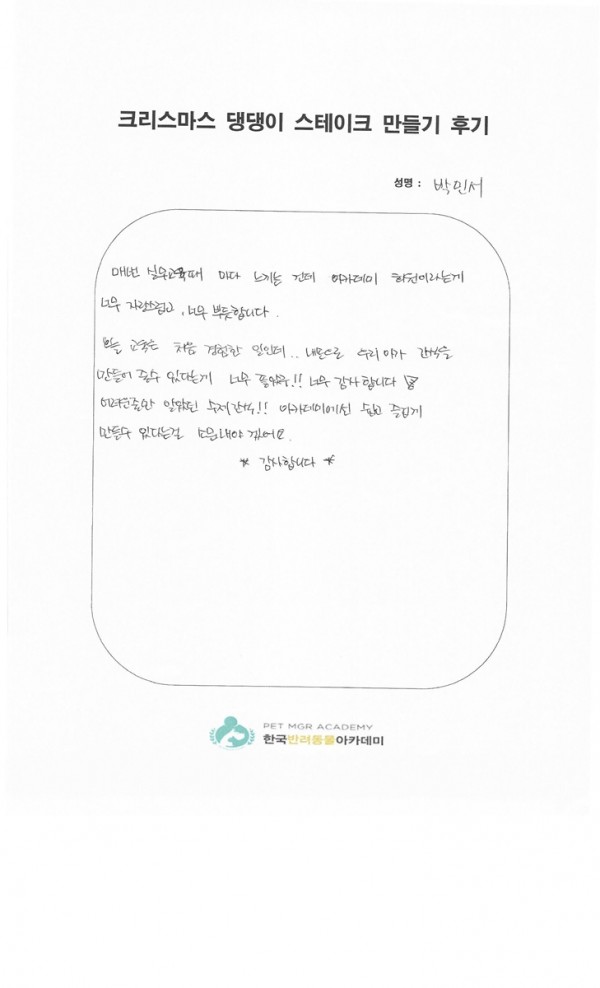 크리스마스 댕댕이 스테이크 만들기 후기
성명 : 박민서
매번 실무교육때 마다 느끼는 건데 아카데미 회원이라는게
너무 자랑스럽고, 너무 뿌듯합니다.
오늘 교육은 처음 경험한 일인데.. 내손으로 우리 아가 간식을
만들어 줄수 있다는게 너무 !! 너무 감사합니다
어려운줄만 알았던 수제간식!! 아카데미에선 쉽고 즐겁게
만들수 있다는걸 소문내야 겠어요.
* 감사합니다 *
PET MGR ACADEMY
한국반려동물아카데미